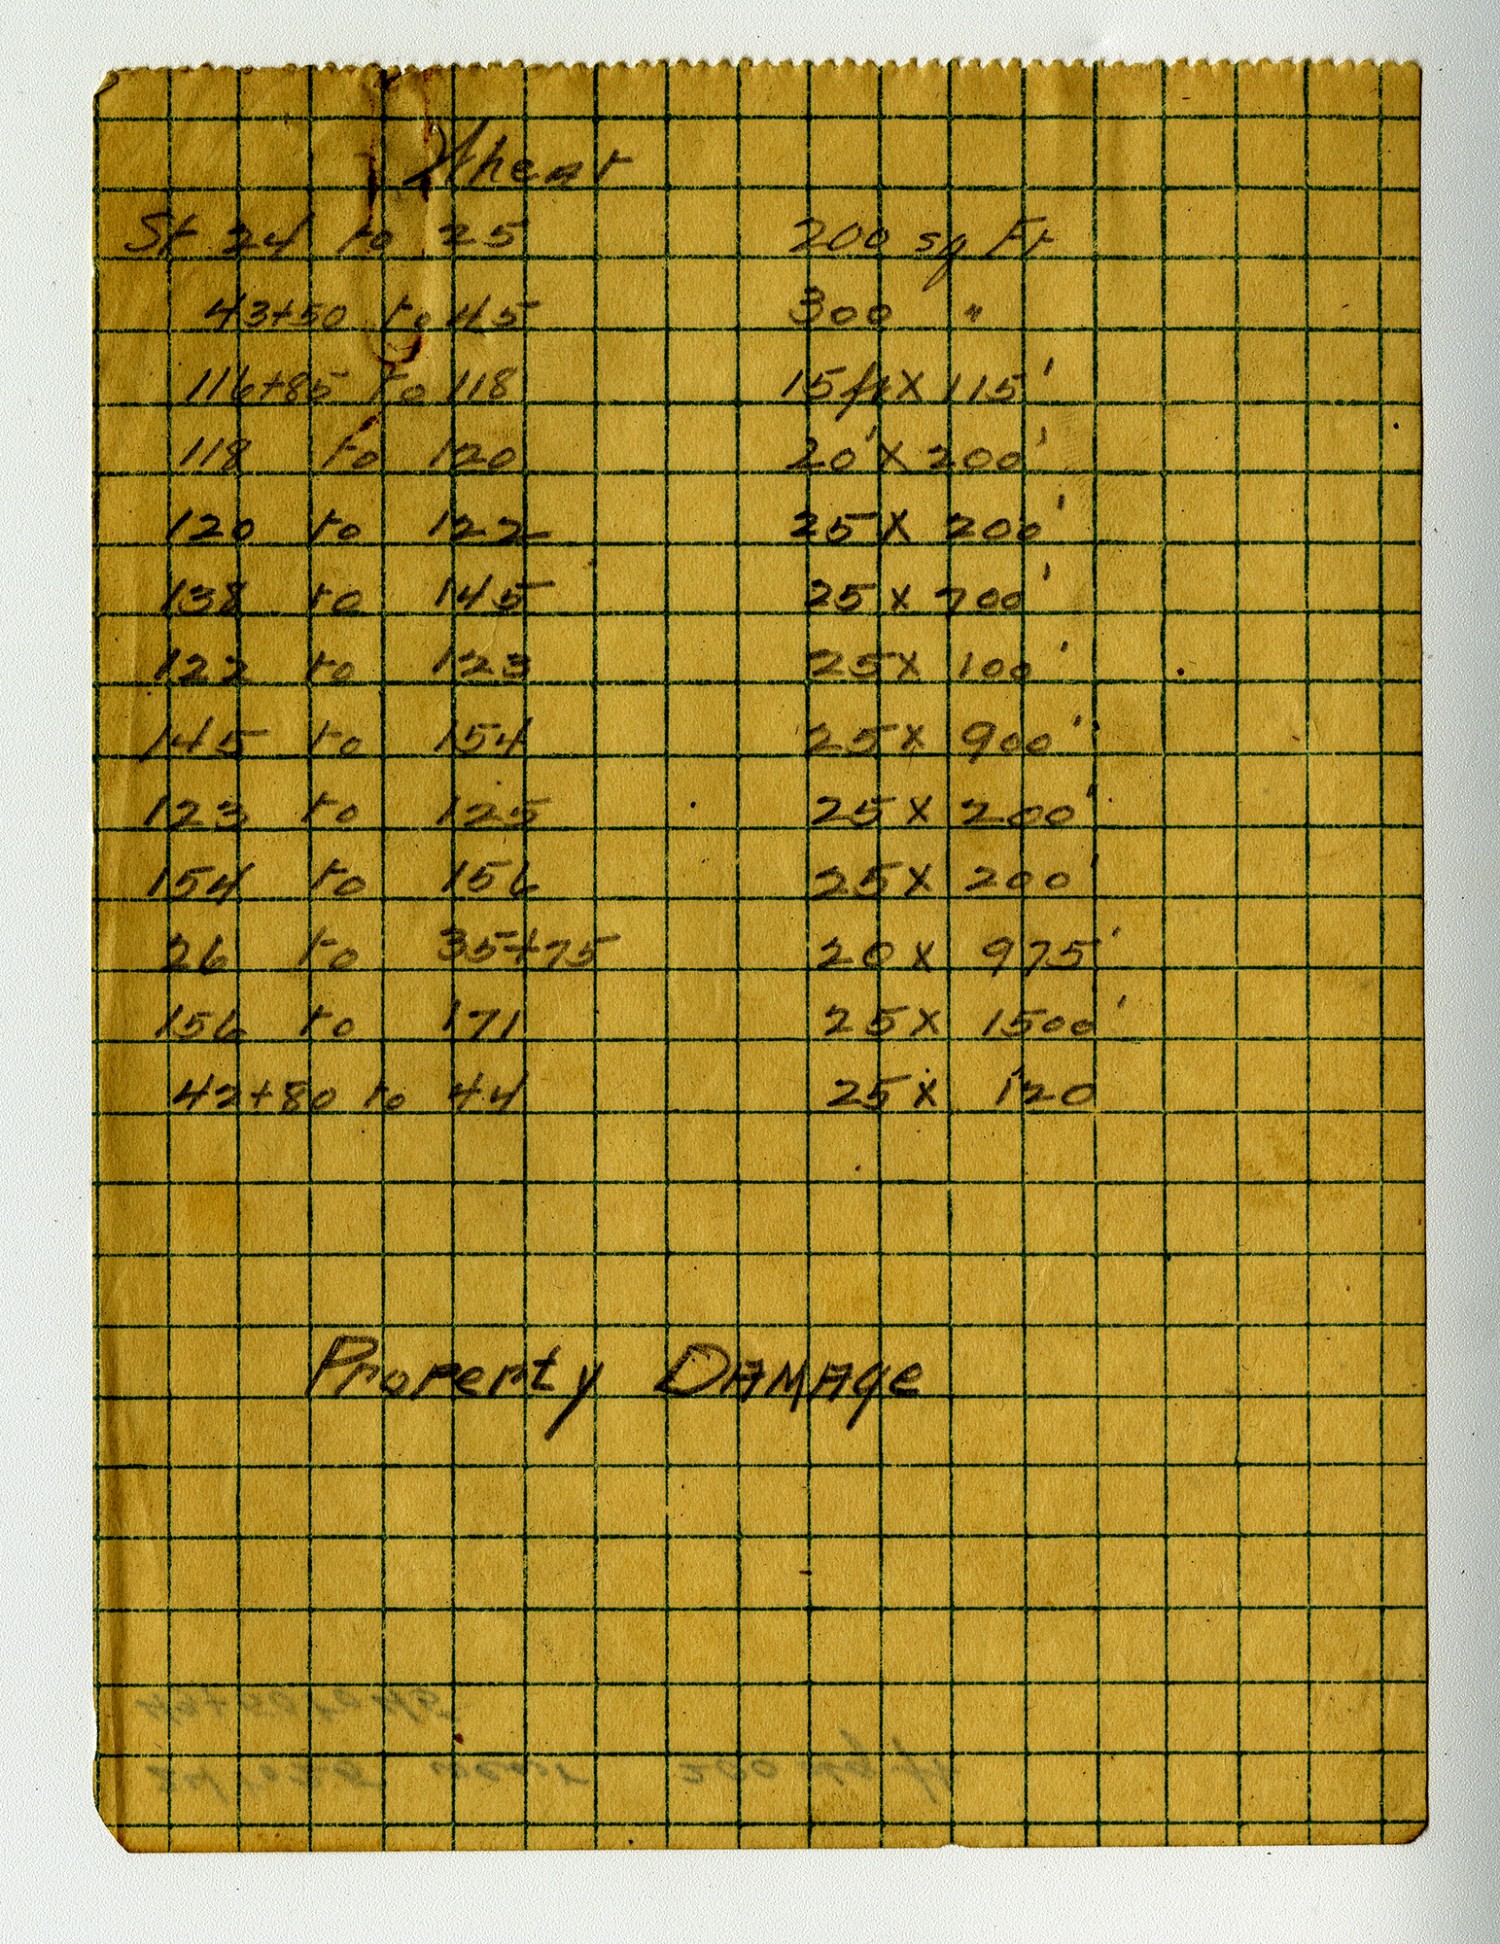 Wheat
St 24 to 25 200 sq Ft
43+50 to 45 300 "
116+85 to 118 15ft X 115'
118 to 120 20' X 200'
120 to 122 25 X 200'
138 to 145 25 X 700'
122 to 123 25 X 100'
145 to 154 25 X 900'
123 to 125 25 X 200'
154 to 156 25 X 200'
26 to 35+75 20 X 975'
156 to 171 25 X 1500'
42+80 to 44 25 X 120
Property DAMAge